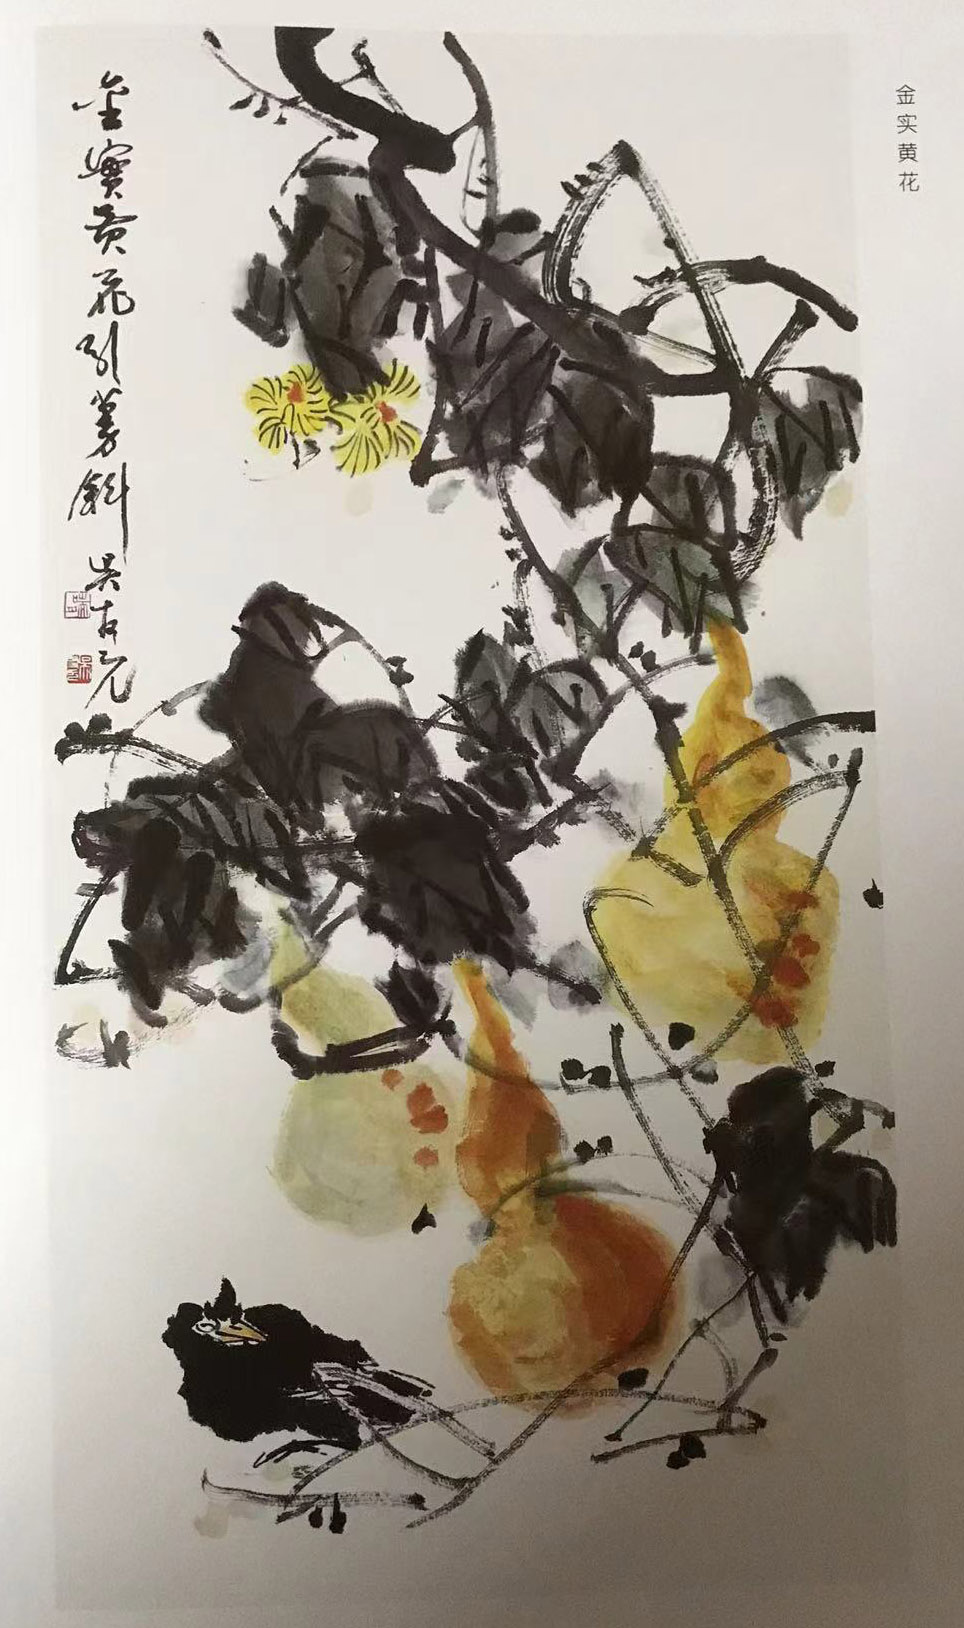 金实黄花
金實黄花引蔓斜 吴友元